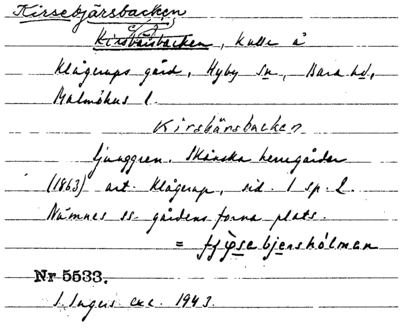 Kirsebjärsbacken
Kirsbärsbacken, kulle å
Klågerups gård, Hyby sn, Bara hd,
Malmöhus l.
Kirsbärsbacken
Ljunggren. Skånska herregårdar
(1863) art. Klågerup, sid. 1 sp. 2.
Nämnes ss. gårdens forna plats.
=
Nr 5533.
I. Ingers exc. 1943.